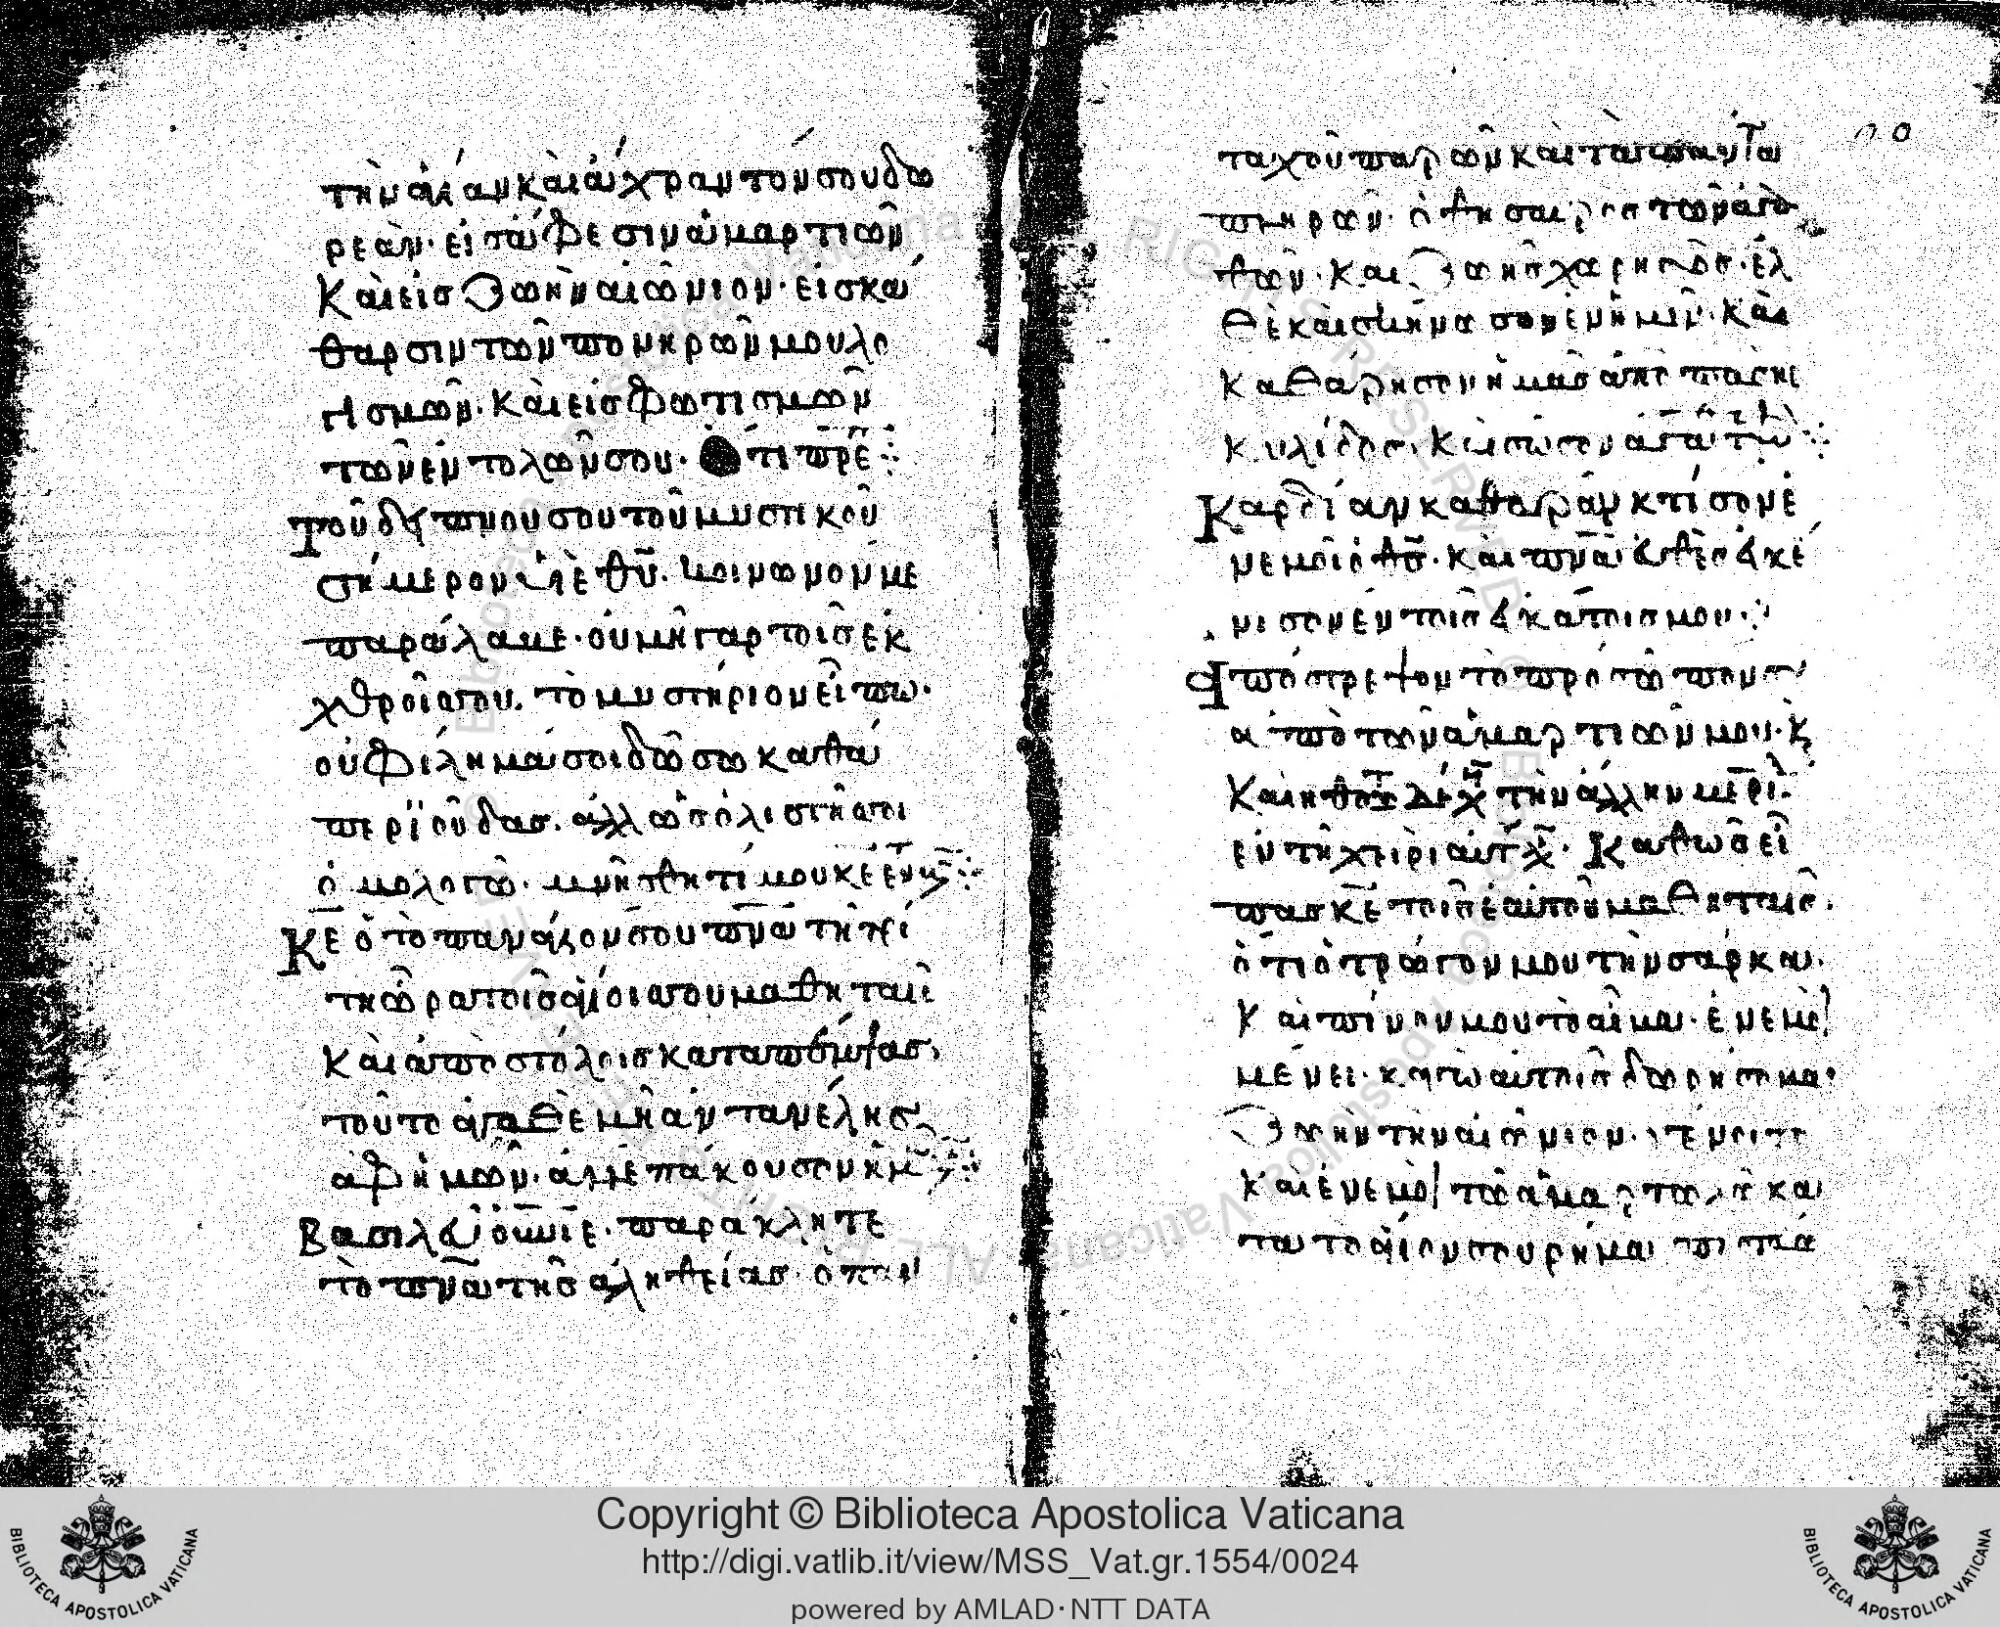 τὴν ἁγίαν καὶ ἄχραντόν σου δω
ρεὰν· εἰς ἄφεσιν ἁμαρτιῶν
Καὶ εἰς ζωὴν αἰώνιον· εἰς κά
θαρσιν τῶν πονηρῶν μου λο
γισμῶν· καὶ εἰς φωτισμῶν
τῶν ἐντολῶν σου· ὅτι πρέ
Τοῦ δείπνου σου τοῦ μυστικοῦ
σήμερον υἱὲ θυ. κοινωνόν με
παράλαβε· οὐ μὴ γὰρ τοῖς ἐκ
χθροῖς σου. τὸ μυστήριον εἴπω·
οὐ φίλημά σοι δώσω καθά
περ ἰούδας. ἀλλ ὡς ὁ λιστὴς σοι
ὁμολογῶ· μνήσθητί μου κε ἐν τῇ
Κε ὁ τὸ πανάγιόν σου πνα τῇ τρί
τη ὥρα τοῖς ἁγίοις σου μαθηταῖς
καὶ ἀποστόλοις καταπέμψας,
τοῦτο ἀγαθὲ μὴ ἀντανέλης
ἀφ ἡμῶν· ἀλλ ἐπάκουσον ἡμ
Βασιλεῦ οὐνιε· παράκλητε
τὸ πνα τῆς ἀληθείας· ὁ παν
ταχοῦ παρὼν καὶ τὰ πάντα
πληρῶν· ὁ θησαυρὸς τῶν ἀγα
θῶν· καὶ ζωῆς χορηγὸς· ἐλ
θὲ καὶ σκήνωσον ἐν ἡμῖν· καὶ
καθάρησον ἡμᾶς ἀπὸ πάσης
κυλίδος· καὶ σῶσον ἀγαθὲ τὰς
Καρδίαν καθαρὰν κτίσον ἐ
ν ἐμοὶ ὁ θς· καὶ πνα εὐθὲς ἐγκέ
νισον ἐν τοῖς ἐγκάτοις μου·
Ἀπόστρεψον τὸ πρόσωπόν σου
ἀπὸ τῶν ἁμαρτιῶν μου· κ
Καὶ ἠθ δέχ τὴν ἄλλην μερί
ἐν τῇ χειρὶ αὐτοῦ· Καθὼς εἶ
πας κε τοῖς ἑαυτοῦ μαθηταῖς.
ὅτι ὁ τρώγον μου τὴν σάρκα.
Καὶ πίνον μου τὸ αἷμα· ἐν ἐμοὶ
μένει· κἀγὼ αὐτοῖς δωρήσομαι
ζωὴν τὴν αἰώνιον· γένοιτο
καὶ ἐν ἐμοὶ τῶ ἁμαρτωλῶ κα
τὰ τὸ ἅγιόν σου ρῆμα
Copyright © Biblioteca Apostolica Vaticana
http://digi.vatlib.it/view/MSS_Vat.gr.1554/0024
powered by AMLAD·NTT DATA
BIBLIOTECA APOSTOLICA VATICANA
BIBLIOTECA APOSTOLICA VATICANA